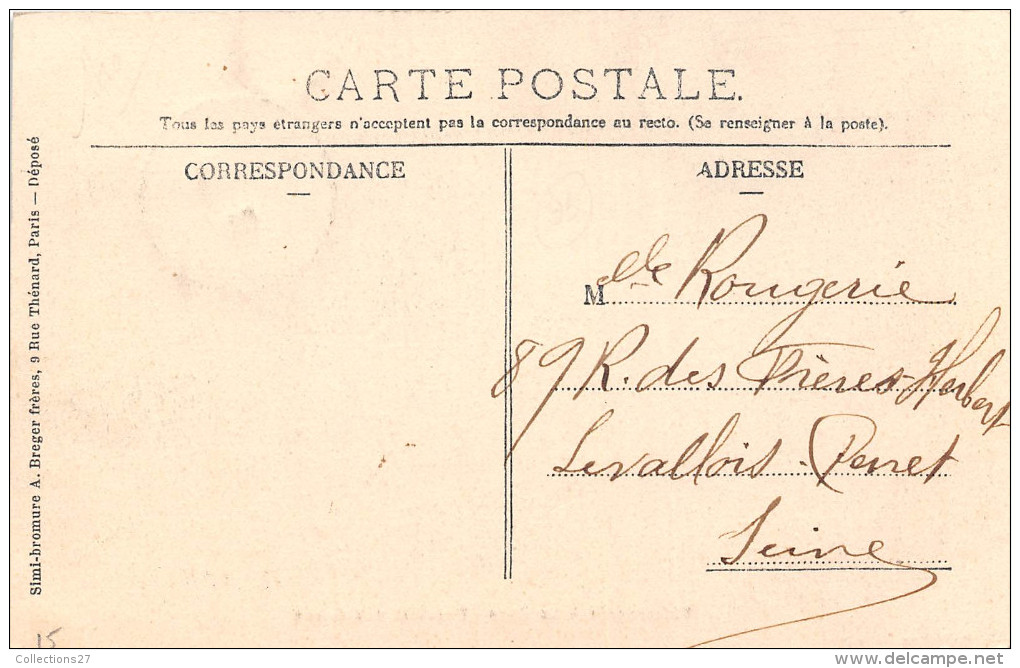 CARTE POSTALE.
Tous les pays étrangers n'acceptent pas la correspondance au recto. (Se renseigner à la poste).
CORRESPONDANCE
ADRESSE
Mlle Rougerie
89 R. des Frères-Herbert
Levallois-Perret
Seine
Simi-bromure A. Breger frères, 9 Rue Thénard, Paris — Déposé
15
Collections27
www.delcampe.net